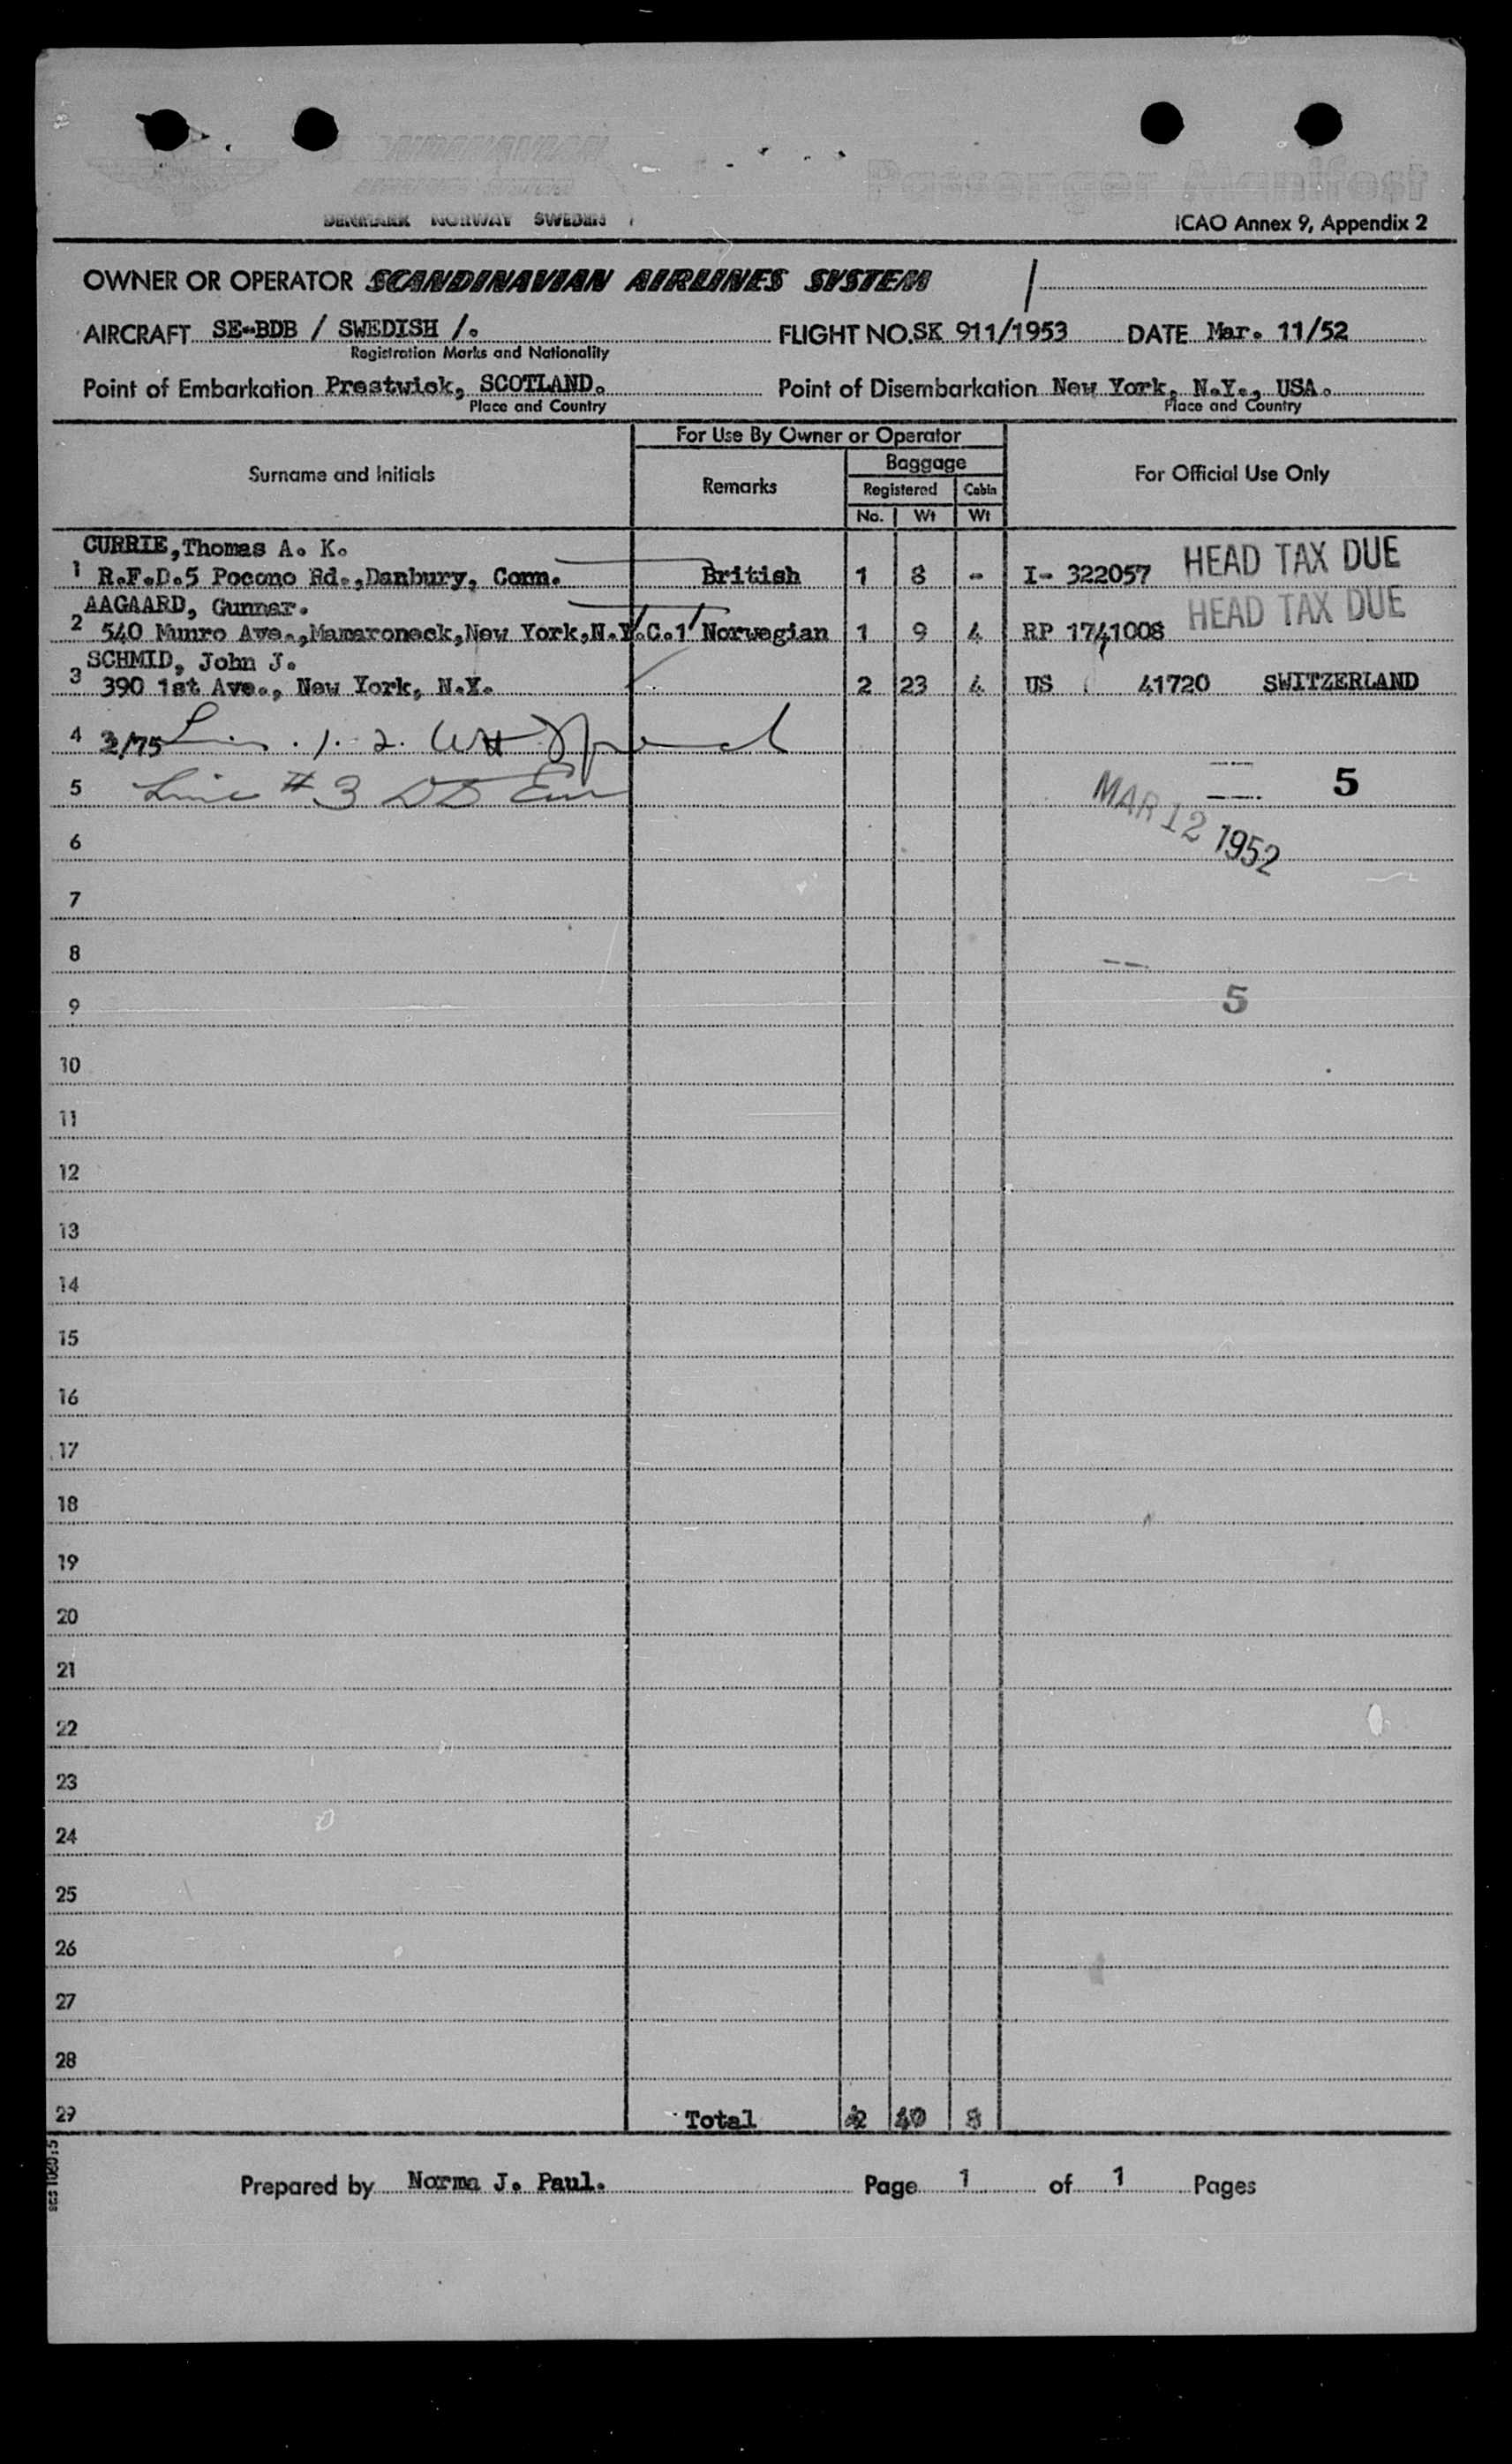 SCANDINAVIAN
AIRLINES SYSTEM
DENMARK NORWAY SWEDEN
Passenger Manifest
ICAO Annex 9, Appendix 2
OWNER OR OPERATOR SCANDINAVIAN AIRLINES SYSTEM
AIRCRAFT SE-BDB / SWEDISH /. FLIGHT NO. SK 911/1953 DATE Mar. 11/52
Registration Marks and Nationality
Point of Embarkation Prestwick, SCOTLAND. Point of Disembarkation New York, N.Y., USA.
Place and Country Place and Country
For Use By Owner or Operator
Surname and Initials Remarks Baggage For Official Use Only
Registered Cabin
No. Wt Wt
CURRIE, Thomas A. K. HEAD TAX DUE
1 R.F.D.5 Pocono Rd., Danbury, Conn. British 1 8 - I- 322057
AAGAARD, Gunnar. HEAD TAX DUE
2 540 Munro Ave., Mamaroneck, New York, N.Y.C.1 Norwegian 1 9 4 RP 1741008
SCHMID, John J.
3 390 1st Ave., New York, N.Y. 2 23 4 US 41720 SWITZERLAND
4 2/75 1. 2.
5 Line #3 5
MAR 12 1952
6
7
8
9 5
10
11
12
13
14
15
16
17
18
19
20
21
22
23
24
25
26
27
28
29 Total 40 8
Prepared by Norma J. Paul. Page 1 of 1 Pages